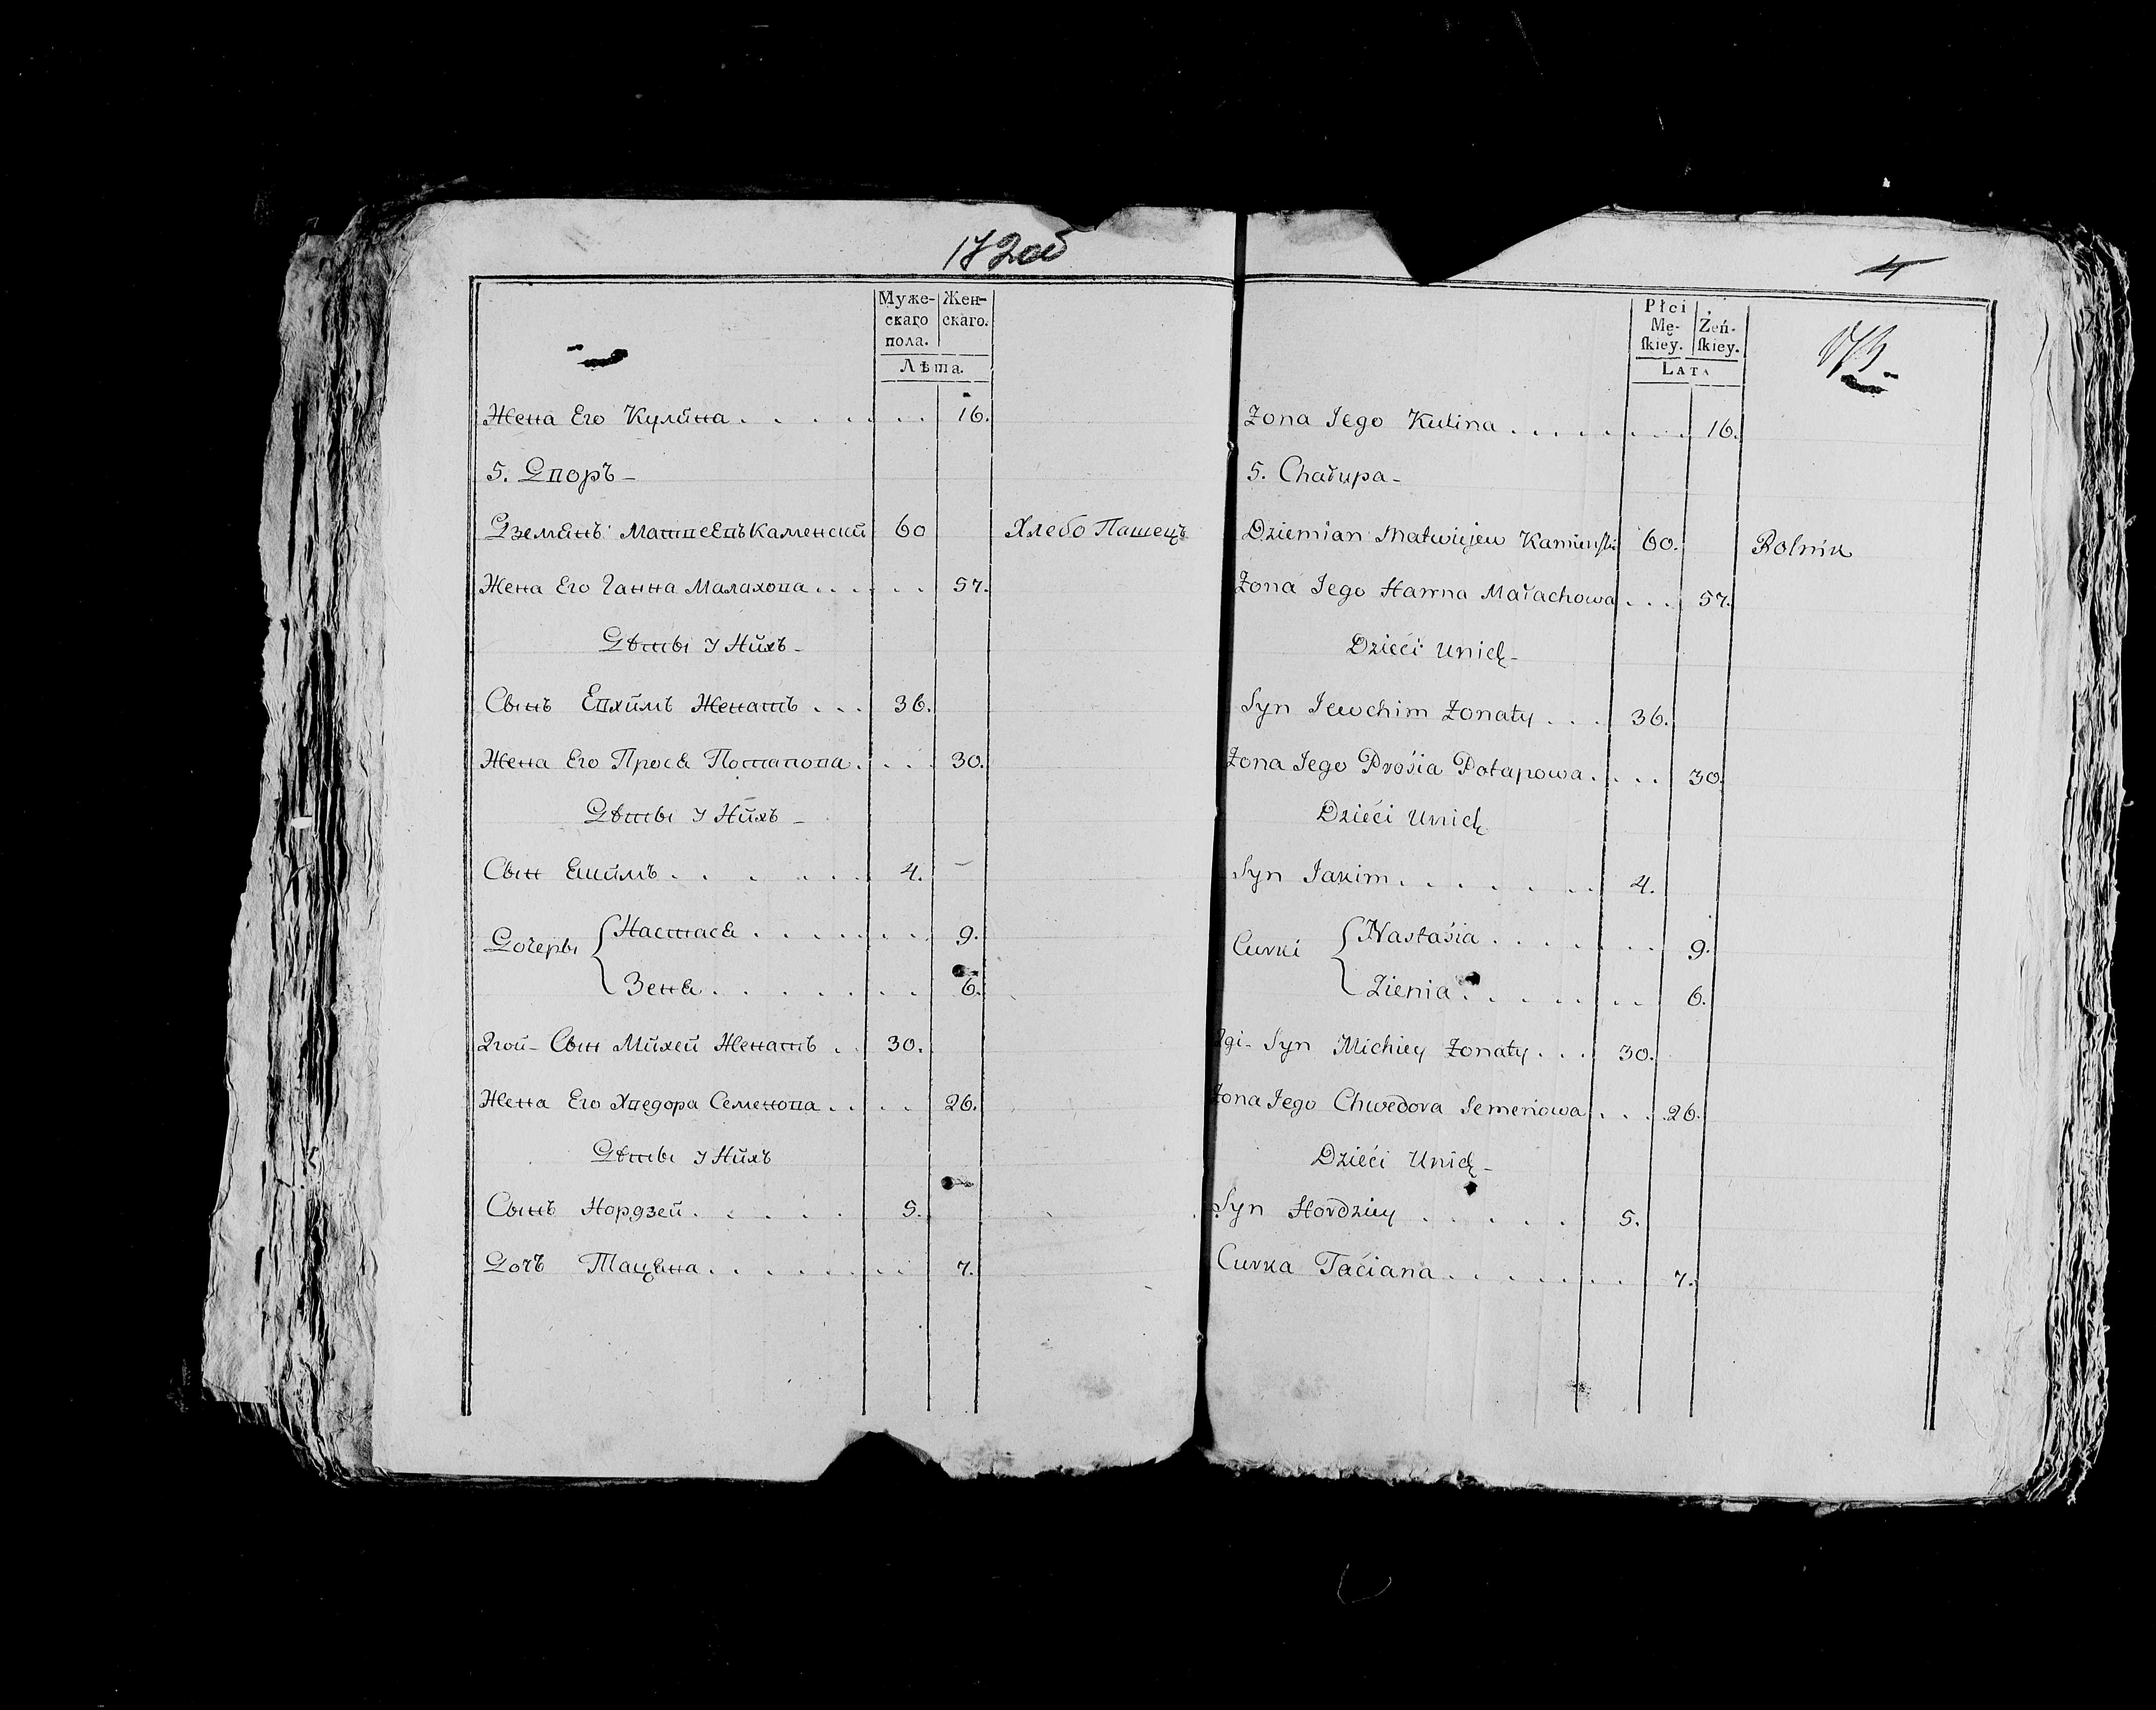 172об
Муже-
скаго
пола.
Жен-
скаго.
Лѣта.
Жена Его Кулина . . . . . . . 16.
5. Дворъ –
Дземянъ Матвеевъ Каменский 60 Хлебо Пашецъ
Жена Его Ганна Малахова . . . . . 57.
Дѣты У Нихъ –
Сынъ Евхимъ Женатъ . . . 36.
Жена Его Прося Потапова . . . . 30.
Дѣты У Нихъ –
Сын Якимъ . . . . . . . 4. –
Дочеры { Настася . . . . . . . 9.
Зеня . . . . . . . 6.
2гой – Сын Михей Женатъ . . 30.
Жена Его Хведора Семенова . . . . 26.
Дѣты У Нихъ
Сынъ Нордзей . . . . . 5.
Дочъ Тацяна . . . . . . . 7.
4
Płci
Mę-
skiey.
Żeń-
skiey.
Lata
173
Żona Jego Kulina . . . . . . . 16.
5. Chałupa –
Dziemian Matwiejew Kamieński 60. Rolnik
Żona Jego Hanna Małachowa . . . 57.
Dzieći Unich –
Syn Jewchim Żonaty . . . 36.
Żona Jego Prośia Potapowa . . . . 30.
Dzieći Unich
Syn Jakim . . . . . . . 4.
Curki { Nastaśia . . . . . . . 9.
Zienia . . . . . . . 6.
2gi – Syn Michiey Żonaty . . . 30.
Żona Jego Chwedora Semenowa . . . 26.
Dzieći Unich –
Syn Hordziey . . . . . 5.
Curka Taćiana . . . . . . . 7.